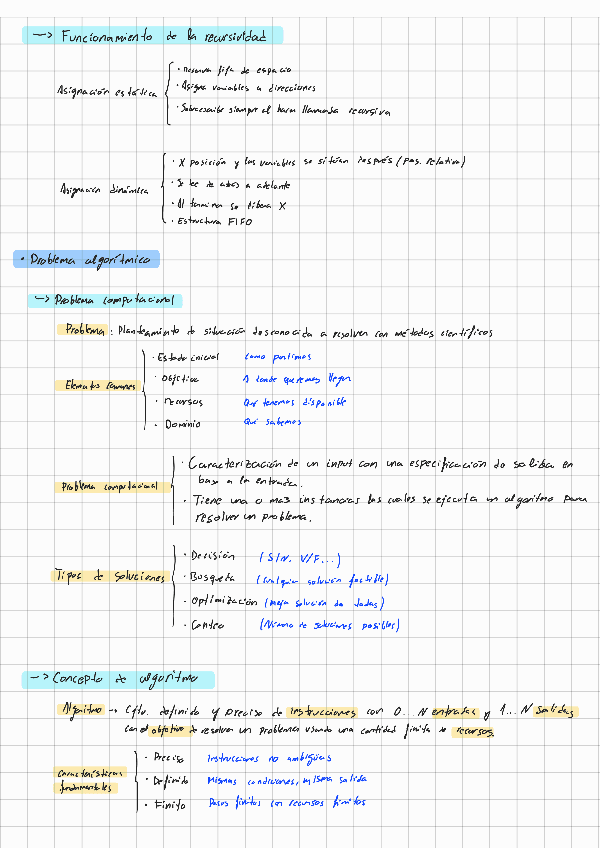 —> Funcionamiento de la recursividad
Asignación estática
· Reserva fija de espacio
· Asigna variables a direcciones
· Sobrescribe siempre al hacer llamada recursiva
Asignación dinámica
· X posición y las variables se sitúan después (pos. relativa)
· Se lee de atrás a adelante
· Al terminar se libera X
· Estructura FIFO
· Problema algorítmico
—> Problema computacional
Problema: Planteamiento de situación desconocida a resolver con métodos científicos
Elementos comunes
· Estado inicial como partimos
· Objetivo A donde queremos llegar
· recursos Qué tenemos disponible
· Dominio Qué sabemos
Problema computacional
· Caracterización de un input con una especificación de salida en
base a la entrada.
· Tiene una o mas instancias las cuales se ejecuta un algoritmo para
resolver un problema.
Tipos de soluciones
· Decisión (S/N. V/F...)
· Busqueda (Cualquier solución posible)
· Optimización (mejor solución de todas)
· Conteo (Número de soluciones posibles)
—> Concepto de algoritmo
Algoritmo → Cjto. definido y preciso de instrucciones con 0... N entradas y 1... N salidas
con el objetivo de resolver un problema usando una cantidad finita de recursos.
Características
fundamentales
· Preciso Instrucciones no ambiguas
· Definido Mismas condiciones, misma salida
· Finito Pasos finitos con recursos finitos